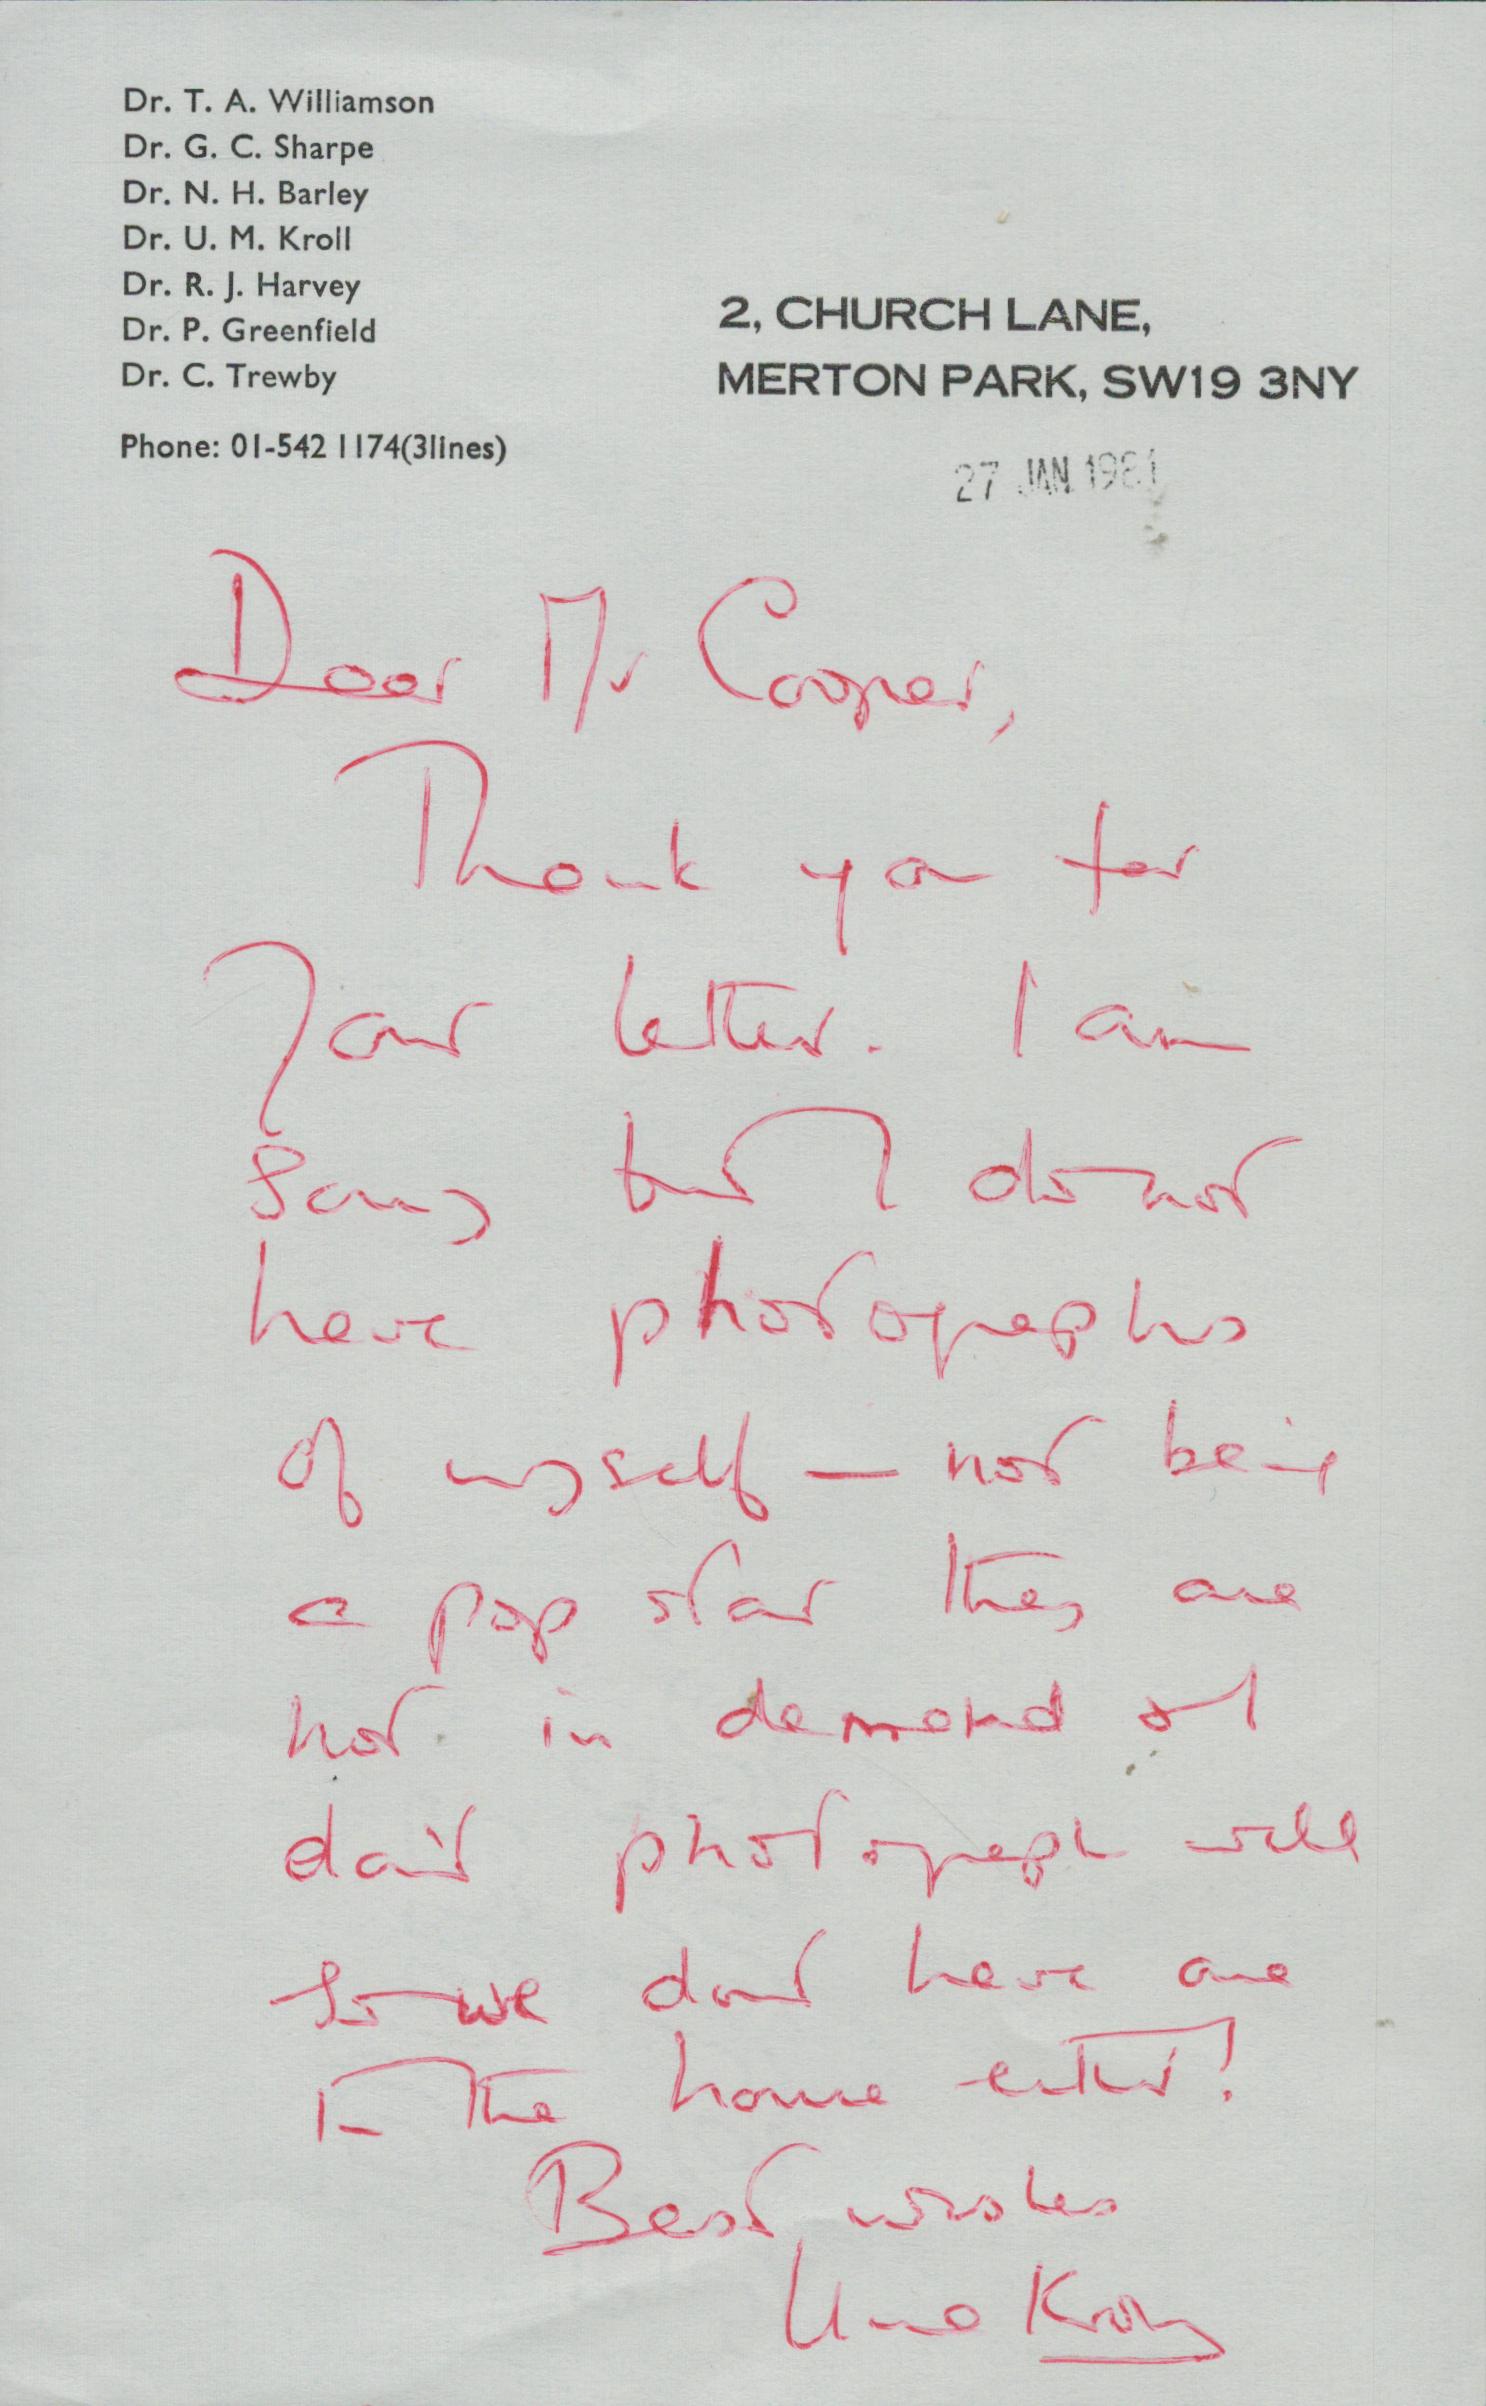 Dr. T. A. Williamson
Dr. G. C. Sharpe
Dr. N. H. Barley
Dr. U. M. Kroll
Dr. R. J. Harvey
Dr. P. Greenfield
Dr. C. Trewby
Phone: 01-542 1174(3lines)
2, CHURCH LANE,
MERTON PARK, SW19 3NY
27 JAN 1981
Dear Mr Cooper,
Thank you for
your letter. I am
sorry but I do not
have photographs
of myself – not being
a pop star they are
not in demand & I
don't photograph well
so we don't have one
in the home either!
Best wishes
Una Kroll